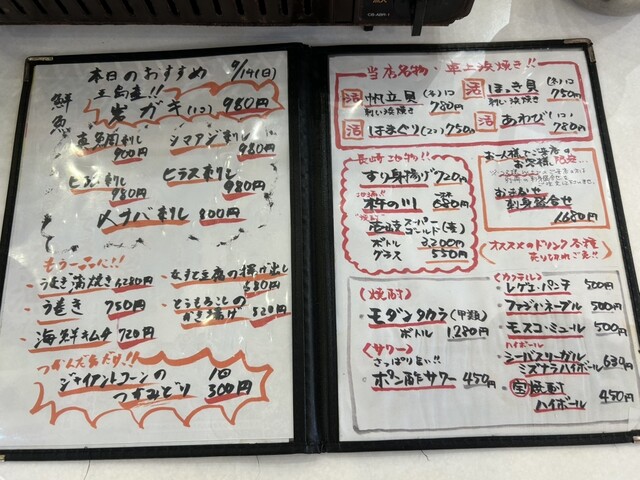 本日のおすすめ 9/14(日)
鮮魚
五島産!!
岩ガキ(1コ) 980円
真魚周刺し 900円
シマアジ刺し 980円
ヒラメ刺し 980円
ヒラス刺し 980円
イサバ刺し 800円
もう一品に!!
・うなぎ蒲焼き 1280円
・なすと豆腐の揚げ出し 680円
・う巻き 750円
・とうもろこしのかき揚げ 520円
・海鮮キムチ 720円
つかんだ者だけ!!
ジャイアントコーンのつかみどり 1回 300円
当店名物・卓上浜焼き!!
活 帆立貝(1コ) 刺し・浜焼き 780円
活 ほっき貝(1コ) 刺し・浜焼き 750円
活 はまぐり(2コ) 750円
活 あわび(1コ) 780円
長崎ご当地物!!
すり身揚げ 720円
杵の川 680円
壱岐スーパーゴールド(麦)
ボトル 3200円
グラス 550円
お一人様でご来店のお客様限定
おまかせ
刺身盛合せ
1680円
(オススメのドリンク各種
売り切れご免!!)
〈焼酎〉
・モダンタカラ(甲類)
ボトル 1280円
〈サワー〉
さっぱり旨い!!
・ポン酢サワー 450円
〈カクテル〉
・レゲエ・パンチ 500円
・ファジィ・ネーブル 500円
・モスコ・ミュール 500円
〈ハイボール〉
・シーバスリーガル
ミズナラハイボール 680円
・宝焼酎
ハイボール 450円